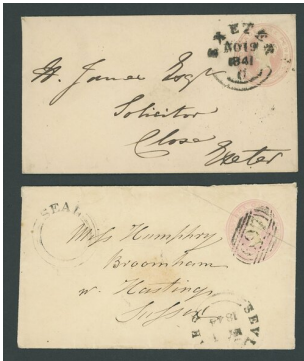 EXETER
NO 19
1841
C
W. James Esqr
Solicitor
Close
Exeter
SEAL
Miss Humphry
Broomham
nr. Hastings
Sussex